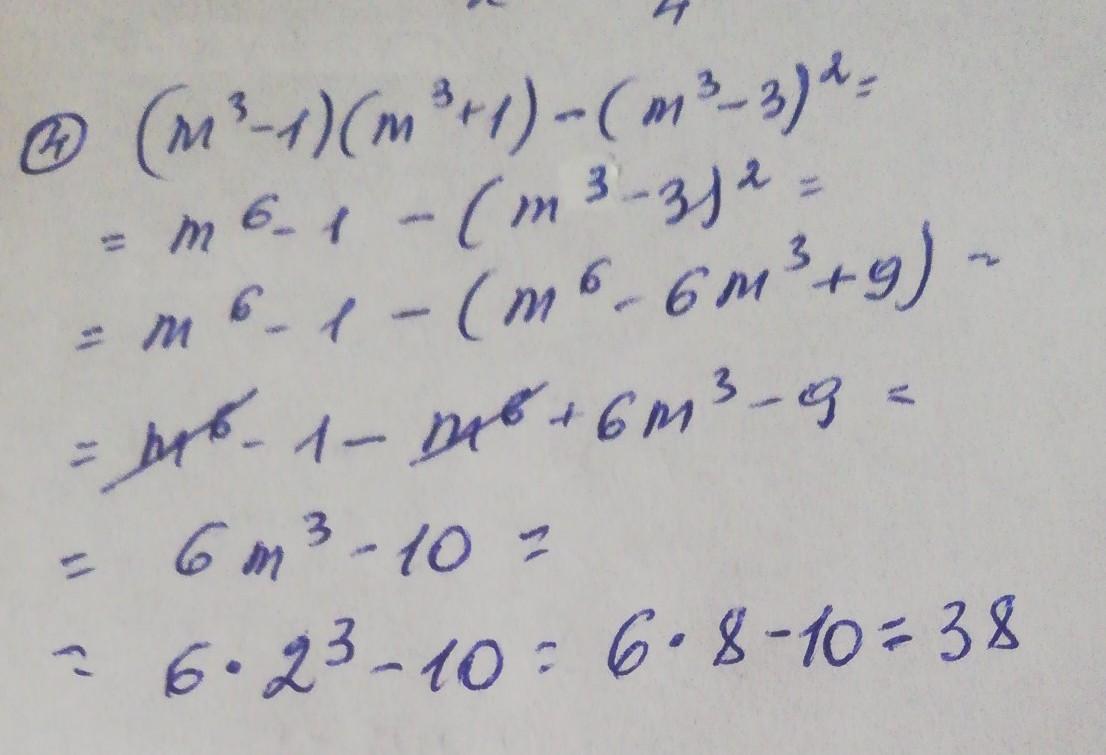 ④ (m³-1)(m³+1)-(m³-3)²=
= m⁶-1-(m³-3)²=
= m⁶-1-(m⁶-6m³+9)=
= m⁶-1-m⁶+6m³-9=
= 6m³-10=
= 6·2³-10=6·8-10=38